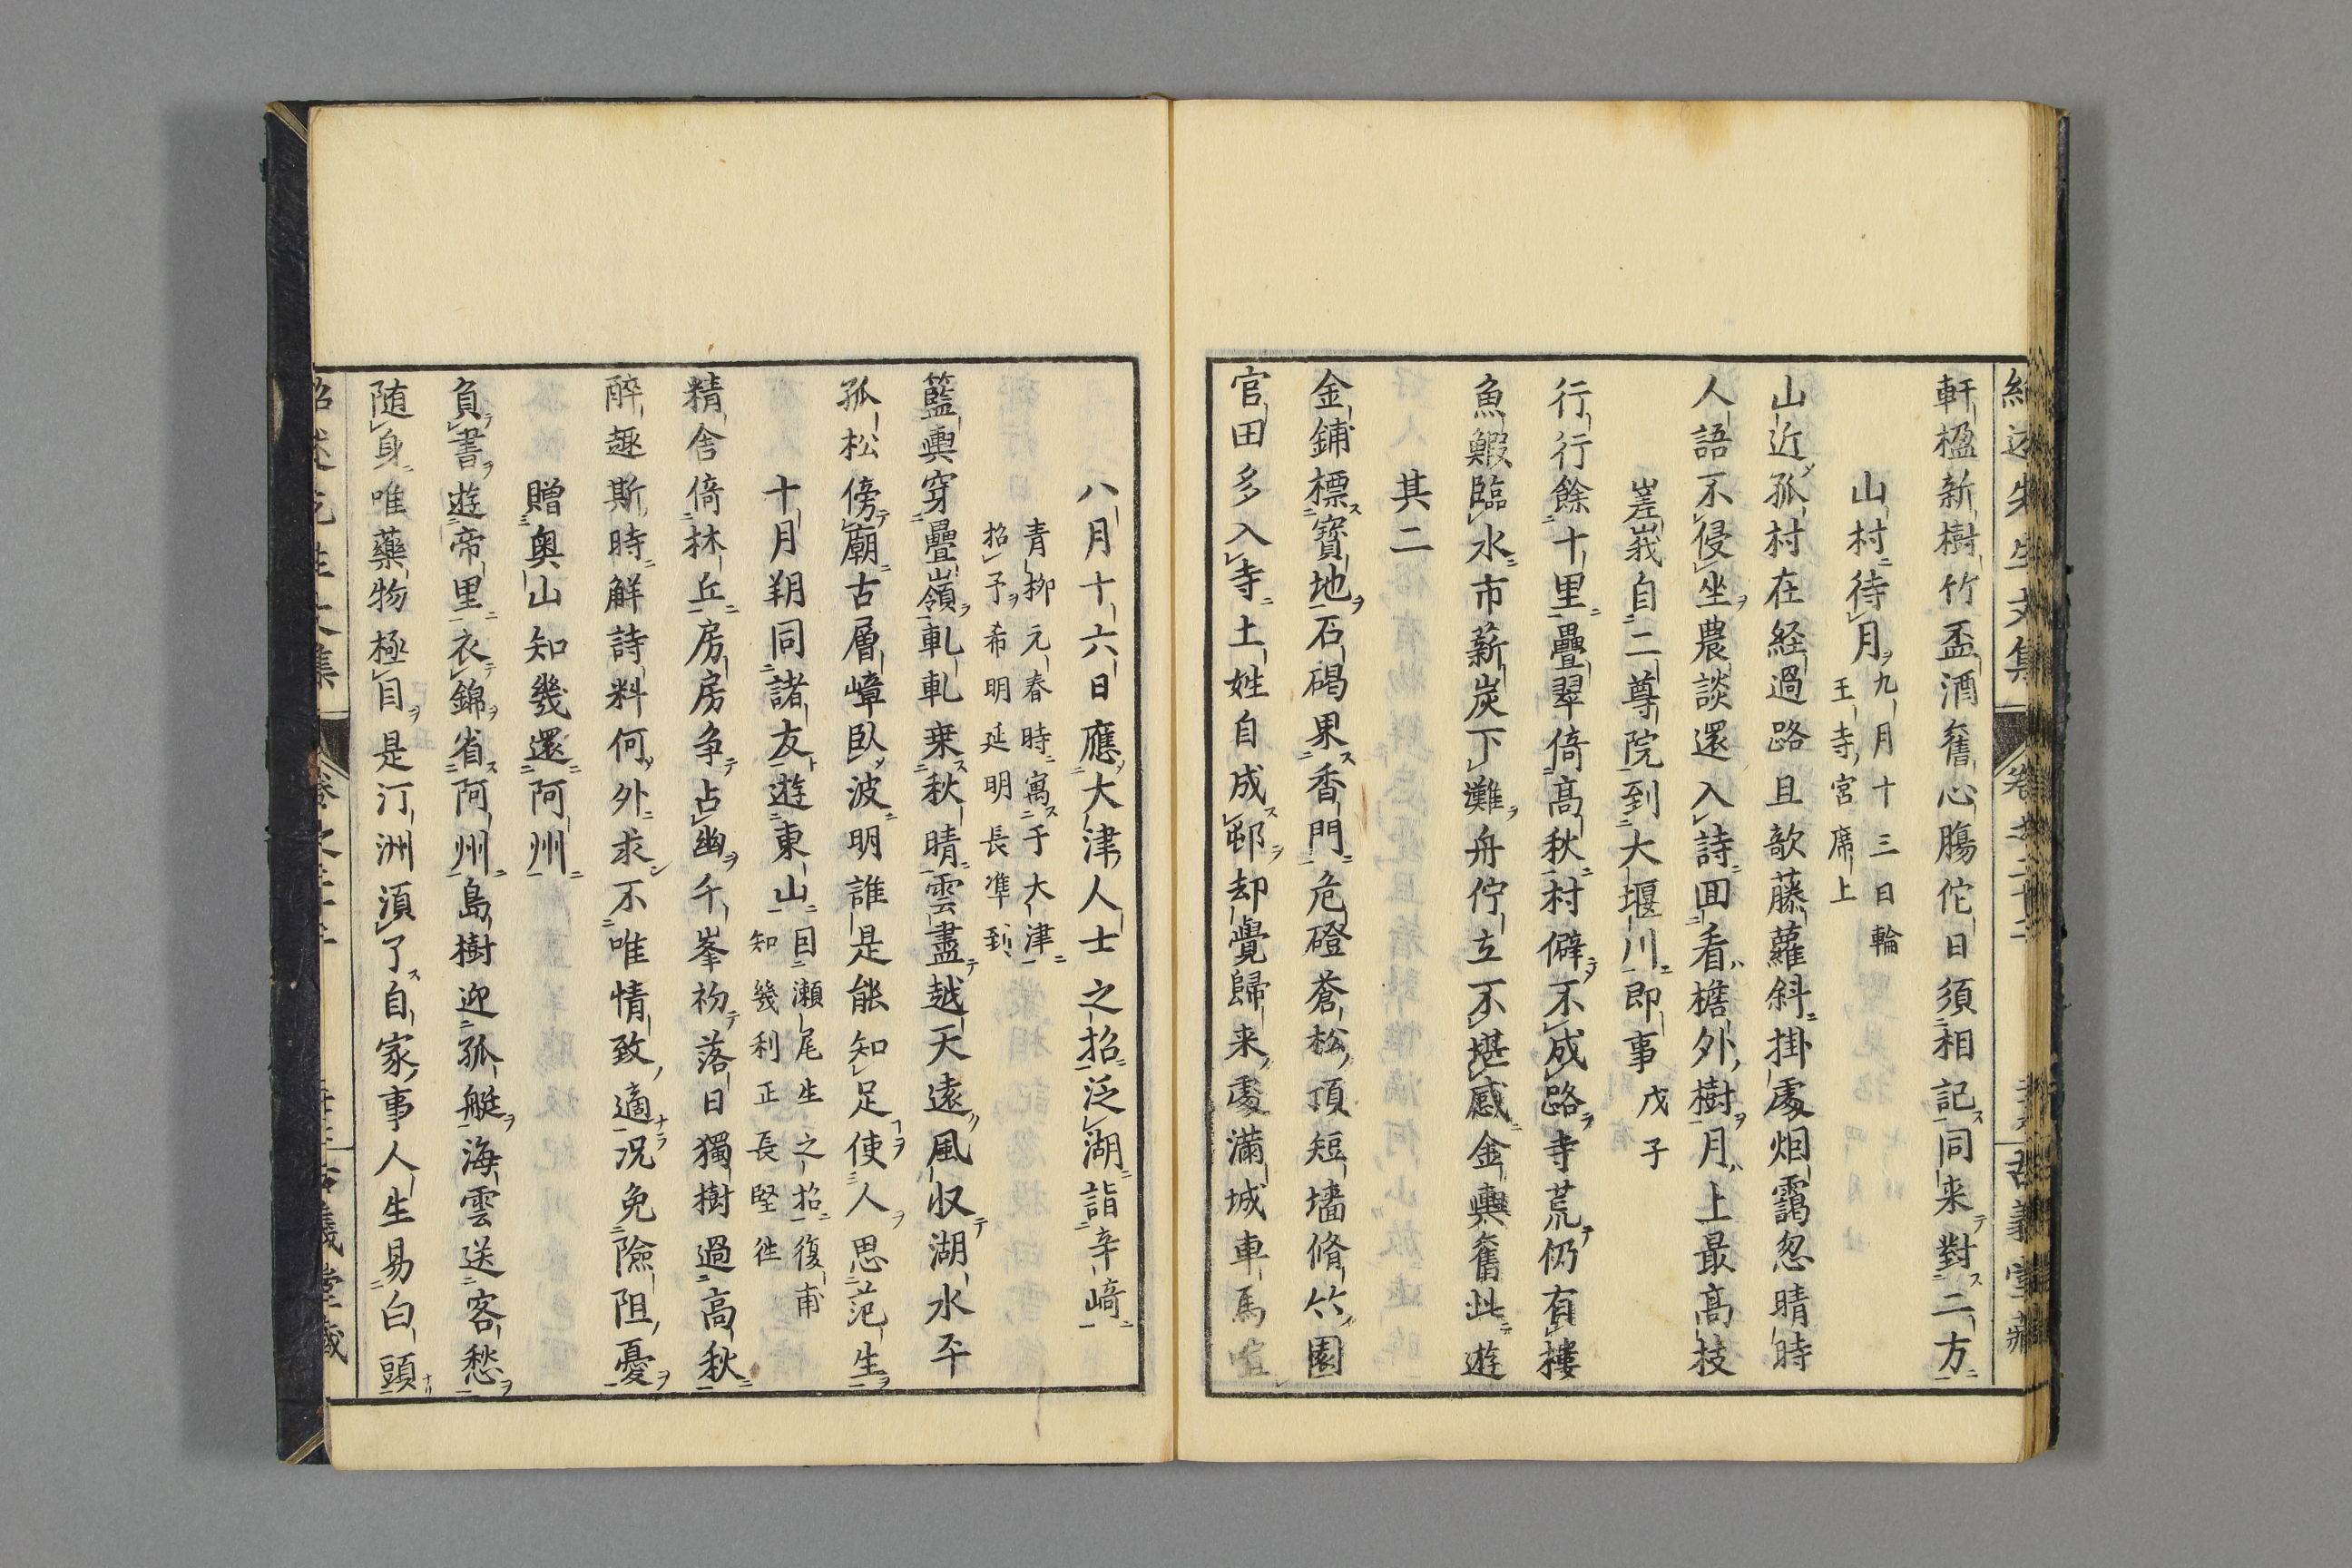 軒楹新樹竹盃酒舊心膓佗日須相記同来對二方
山村待月九月十三日輪
王寺宮席上
山近孤村在経過路且欹藤蘿斜掛處烟靄忽晴時
人語不侵坐農談還入詩回看檐外樹月上最髙枝
嵳峩自二尊院到大堰川即事戊子
行行餘十里疊翠倚髙秋村僻不成路寺荒仍有樓
魚鰕臨水市薪炭下灘舟佇立不堪感金輿舊此遊
其二
金鋪標寳地石碣果香門危磴蒼松頂短墻脩竹園
官田多入寺土姓自成邨却覺歸来處滿城車馬喧
八月十六日應大津人士之招泛湖詣辛﨑
青栁元春時寓于大津
招予希明延明長準到
籃輿穿疊嶺軋軋乗秋晴雲盡越天遠風収湖水平
孤松傍廟古層嶂臥波明誰是能知足使人思范生
十月朔同諸友遊東山因瀬尾生之招復甫
知幾利正長堅徃
精舍倚林丘房房争占幽千峯衬落日獨樹過高秋
醉趣斯時解詩料何外求不唯情致適况免險阻憂
贈奥山知幾還阿州
負書遊帝里衣錦省阿州島樹迎孤艇海雲送客愁
随身唯藥物極目是汀洲須了自家事人生易白頭